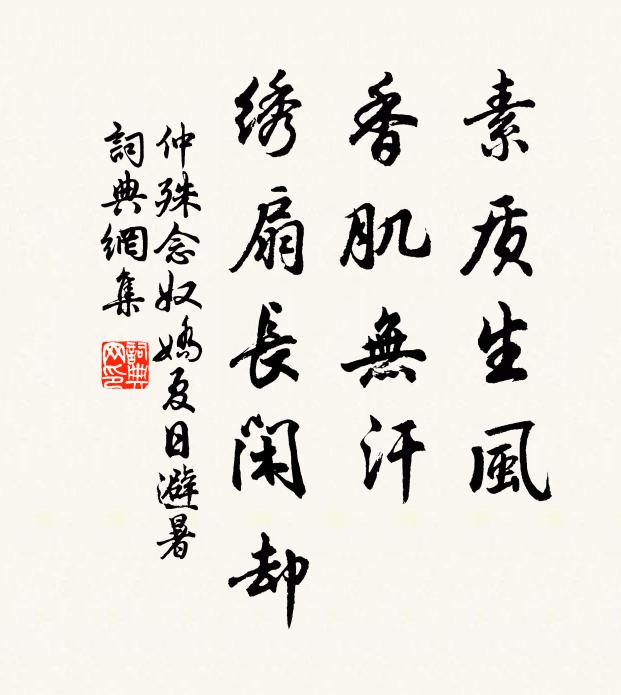 素质生風
香肌無汗
绣扇長閑却
仲殊念奴嬌夏日避暑
詞典網集
詞典
网印